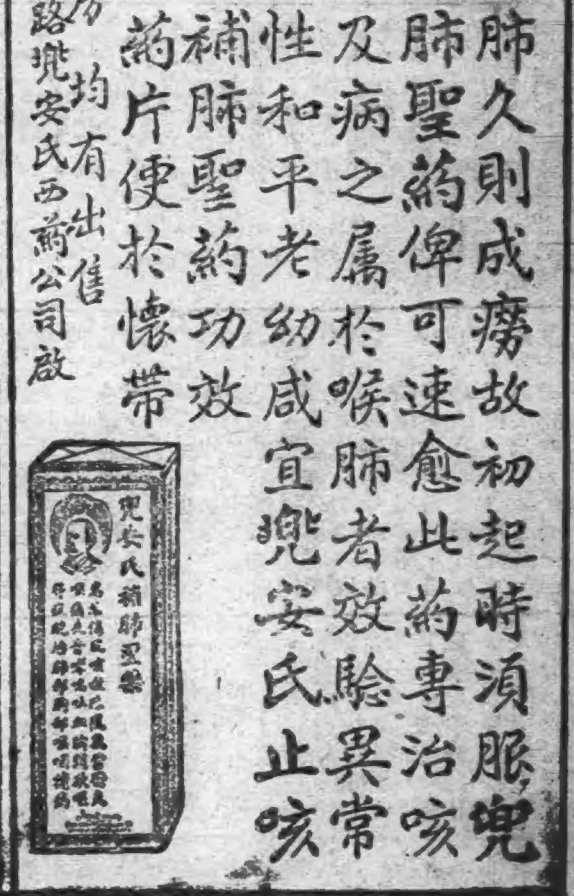 肺久則成癆故初起時須服兜
肺聖葯俾可速愈此葯專治咳
及病之属於喉肺者效驗異常
性和平老幼咸宜兜安氏止咳
補肺聖葯功效
葯片便於懷帶
均有出售
路兜安氏西葯公司啟
兜安氏補肺聖藥